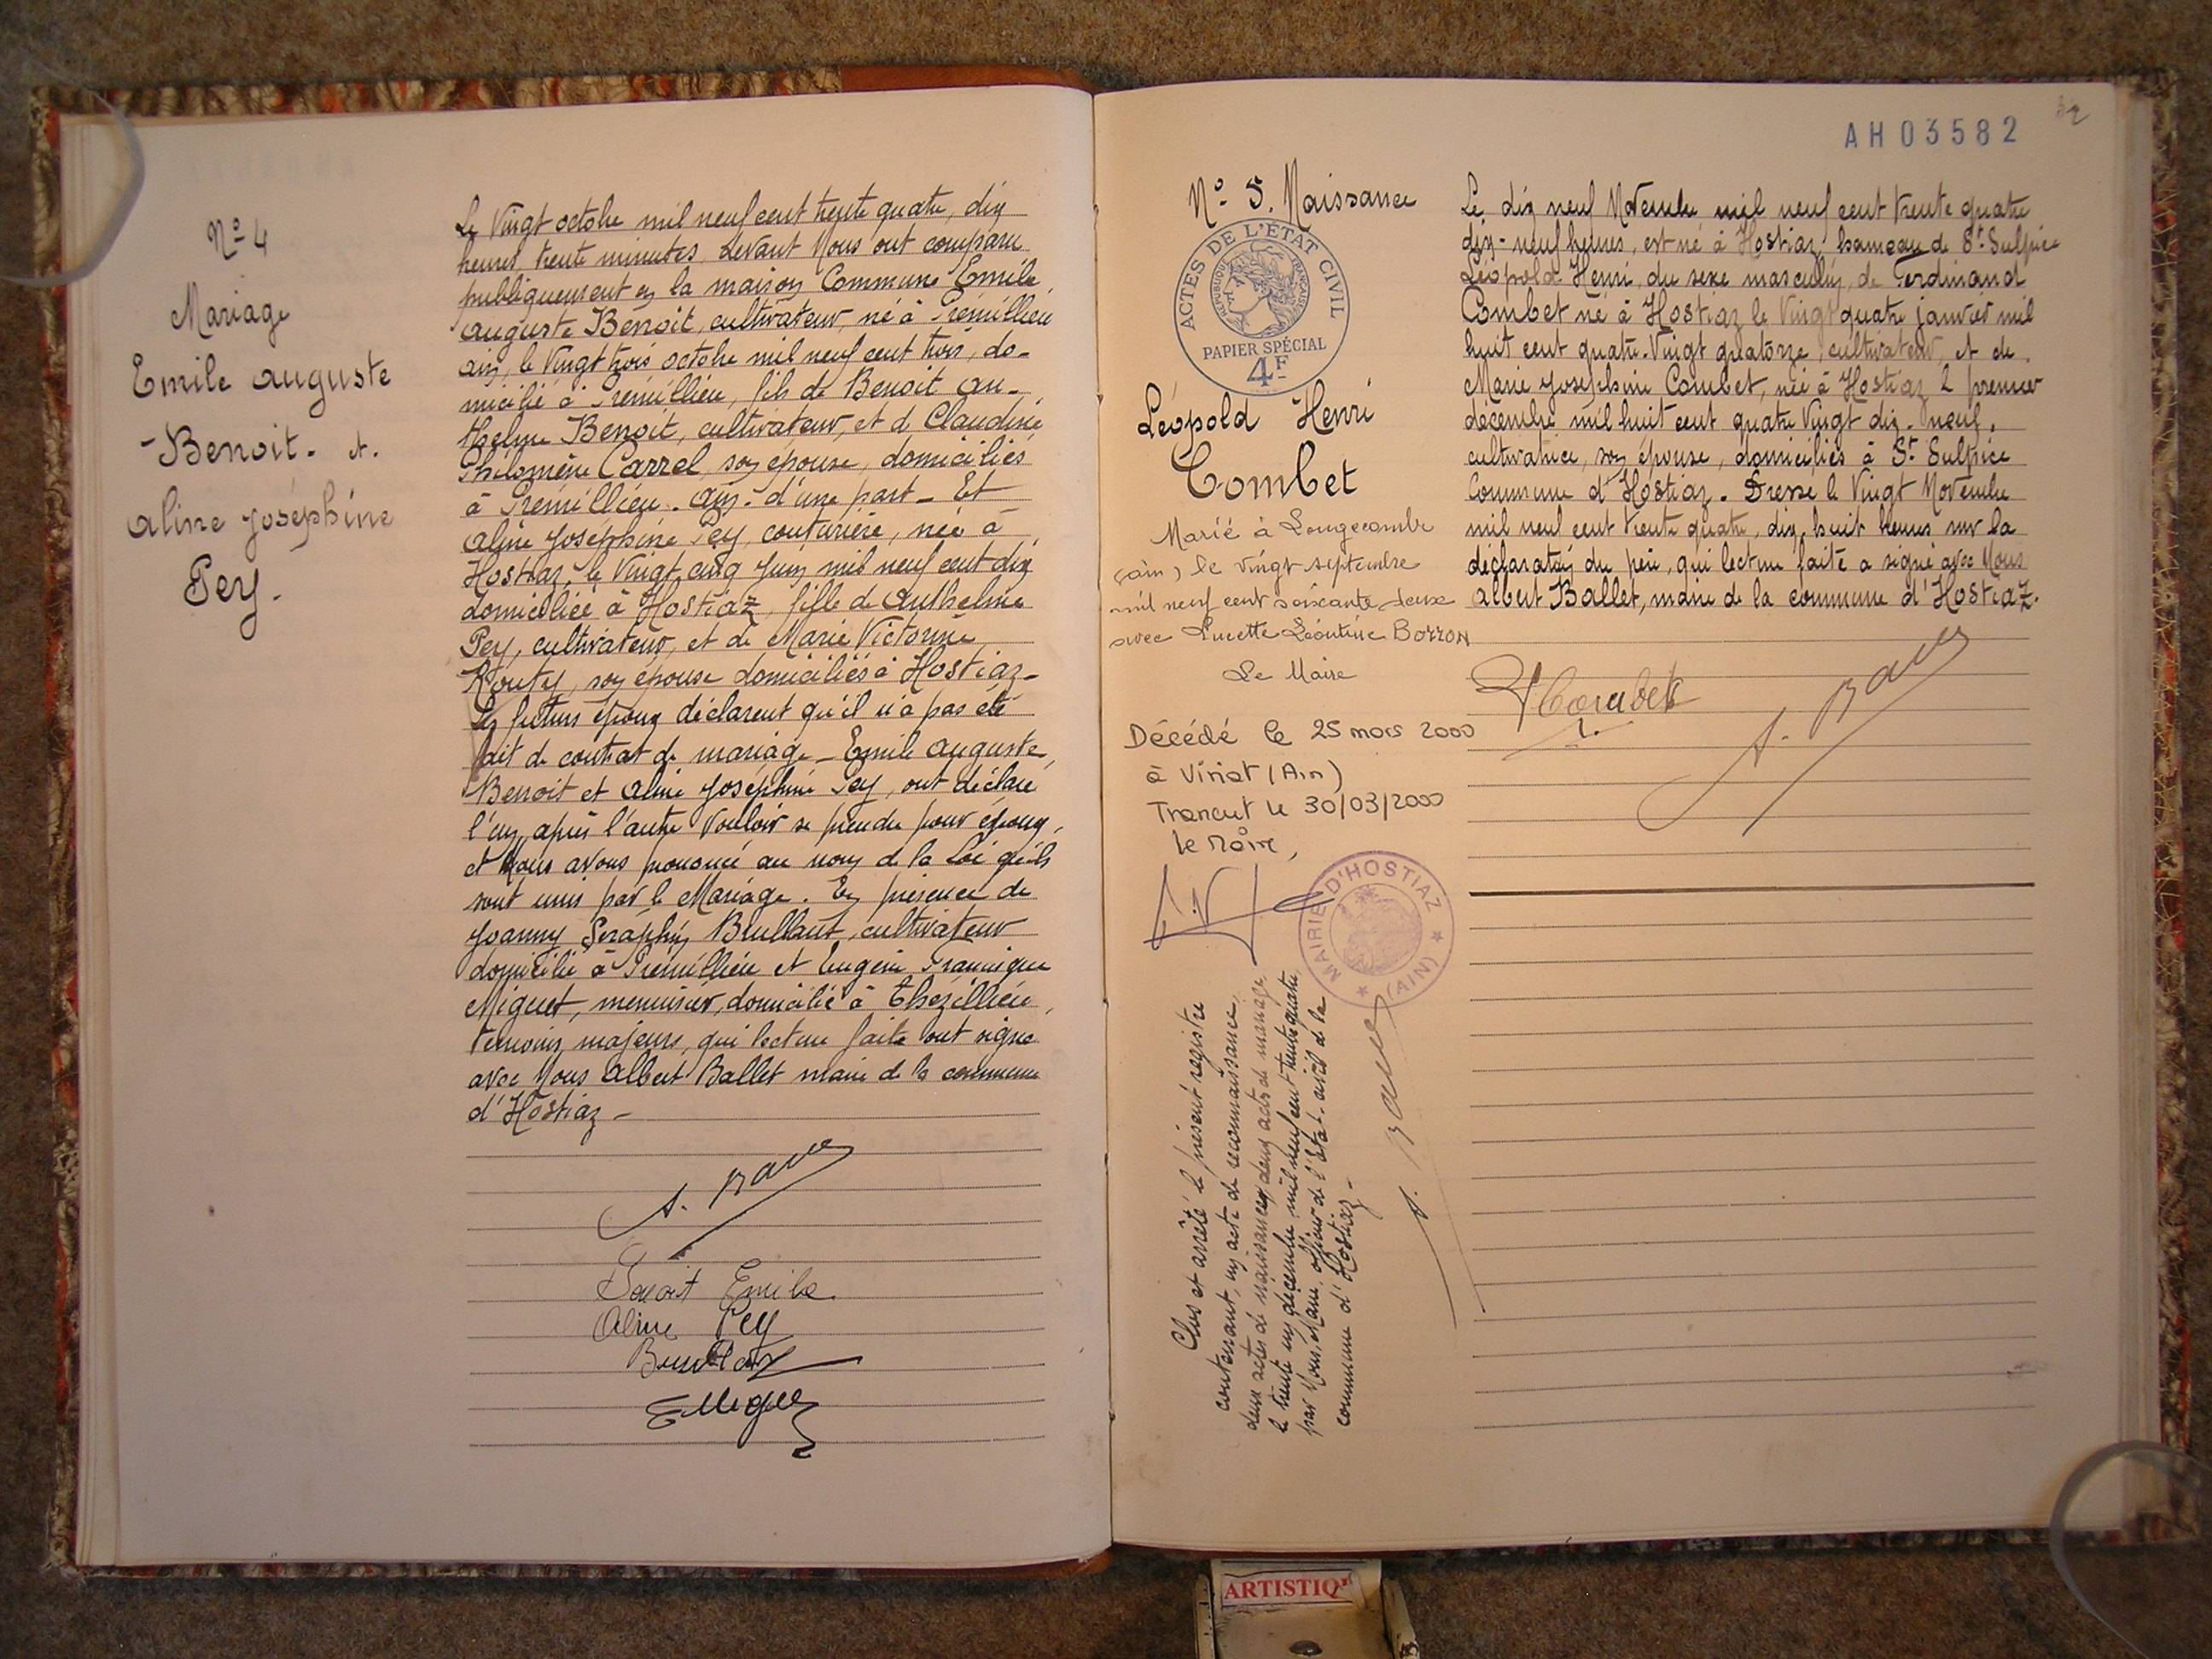 Nº 4
Mariage
Emile Auguste
Benoit. et.
Aline Joséphine
Pey.
Le Vingt octobre mil neuf cent trente quatre, dix
heures trente minutes, devant Nous ont comparu
publiquement en la maison Commune Emile
Auguste Benoit, cultivateur, né à Prémillieu
Ain, le Vingt trois octobre mil neuf cent trois, do-
micilié à Prémillieu, fils de Benoit An-
thelme Benoit, cultivateur, et d Claudine
Philomène Carrel, son épouse, domiciliés
à Prémillieu. Ain. d'une part - Et
Aline Joséphine Pey, couturière, née à
Hostiaz, le Vingt cinq Juin mil neuf cent dix
domiciliée à Hostiaz, fille de Anthelme
Pey, cultivateur, et de Marie Victorine
son épouse domiciliés à Hostiaz -
Les futurs époux déclarent qu'il n'a pas été
fait de contrat de mariage - Emile Auguste
Benoit et Aline Joséphine Pey, ont déclaré
l'un après l'autre Vouloir se prendre pour époux,
et Nous avons prononcé au nom de la Loi qu'ils
sont unis par le Mariage. En présence de
Joanny Séraphin Brullant, cultivateur
domicilié à Prémillieu et Eugène
Miguet, menuisier, domicilié à Thézillieu,
témoins majeurs, qui lecture faite ont signé
avec Nous Albert Ballet maire de la commune
d'Hostiaz -
Benoit Emile
Aline Pey
AH03582
Nº 5. Naissance
ACTES DE L'ÉTAT CIVIL
RÉPUBLIQUE FRANÇAISE
PAPIER SPÉCIAL
4F
Léopold Henri
Combet
Marié à Longecombe
(ain) le vingt septembre
mil neuf cent soixante deux
avec Lucette Léontine BOZZON
Le Maire
Décédé le 25 mars 2000
à Viriat (Ain)
Transcrit le 30/03/2000
le Maire,
MAIRIE D'HOSTIAZ
(AIN)
Clos et arrêté le présent registre
contenant, un acte de reconnaissance,
deux actes de naissances, deux actes de mariage
le trente un décembre mil neuf cent trente quatre,
par Nous, Maire, officier de l'état-civil de la
commune d'Hostiaz -
Le dix neuf Novembre mil neuf cent trente quatre
dix-neuf heures, est né à Hostiaz, hameau de St Sulpice
Léopold Henri, du sexe masculin, de Ferdinand
Combet né à Hostiaz le Vingt quatre janvier mil
huit cent quatre-Vingt quatorze, cultivateur, et de
Marie Joséphine Combet, née à Hostiaz le premier
décembre mil huit cent quatre Vingt dix-neuf,
cultivatrice, son épouse, domiciliés à St Sulpice
Commune d'Hostiaz. Dressé le Vingt Novembre
mil neuf cent trente quatre, dix huit heures sur la
déclaration du père, qui lecture faite a signé avec Nous
Albert Ballet, maire de la commune d'Hostiaz.
Combet
ARTISTIQ